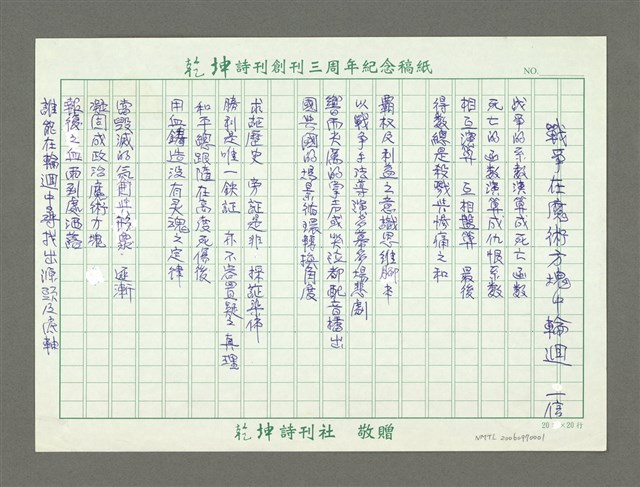 乾坤詩刊創刊三周年紀念稿紙
NO.
戰爭在魔術方塊中輪迴 一信
戰爭的系數演算成死亡函數
死亡的函數演算成仇恨系數
相互演算 互相盤算 最後
得數總是殺戮與慘痛之和
霸權及利益之意識思維腳本
以戰爭手法導演多幕多場悲劇
響而尖厲的軍声或哭泣都配音播出
國與國的場景循環轉換角度
求証歷史 旁証是非 採証染佈
勝利是唯一鉄証 亦不容置疑之真理
和平總跟隨在高度死傷後
用血鑄造没有灵魂之定律
當毀滅的氛圍與形象 逐漸
凝固成政治魔術方塊
報復之血雨到處洒落
誰能在輪迴中尋找出源頭及底軸
乾坤詩刊社 敬贈
20×20行
NMTL20060990001